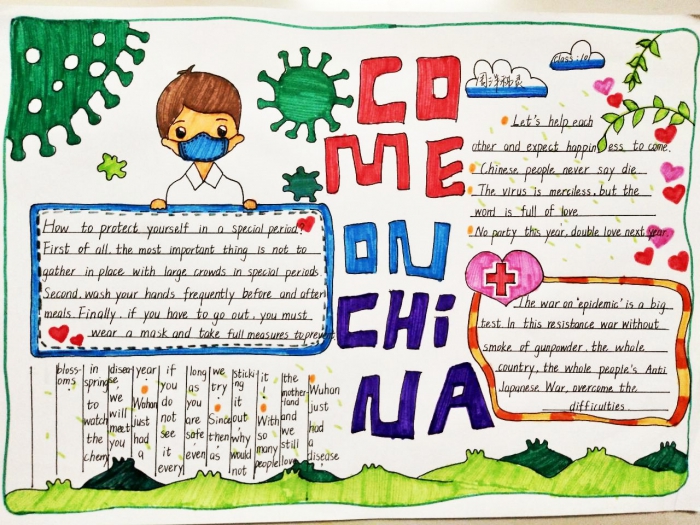 COME
ON
CHiNA
class:10
Let's help each
other and expect happiness to come.
Chinese people never say die.
The virus is merciless, but the
word is full of love
No party this year, double love next year.
How to protect yourself in a special period?
First of all, the most important thing is not to
gather in place with large crowds in special periods
Second, wash your hands frequently before and after
meals. Finally, if you have to go out, you must
wear a mask and take full measures to prevent
The war on 'epidemic' is a big
test. In this resistance war without
smoke of gunpowder, the whole
country, the whole people's Anti
Japanese War, overcome the
difficulties
Wuhan just had a disease
the motherland and we still love
it. With so many people
sticking it out why would not
we try. Since then as
long as you are safe even
if you do not see it every
year Wuhan just had a
disease we will meet you
in spring to watch the cherry
blossoms